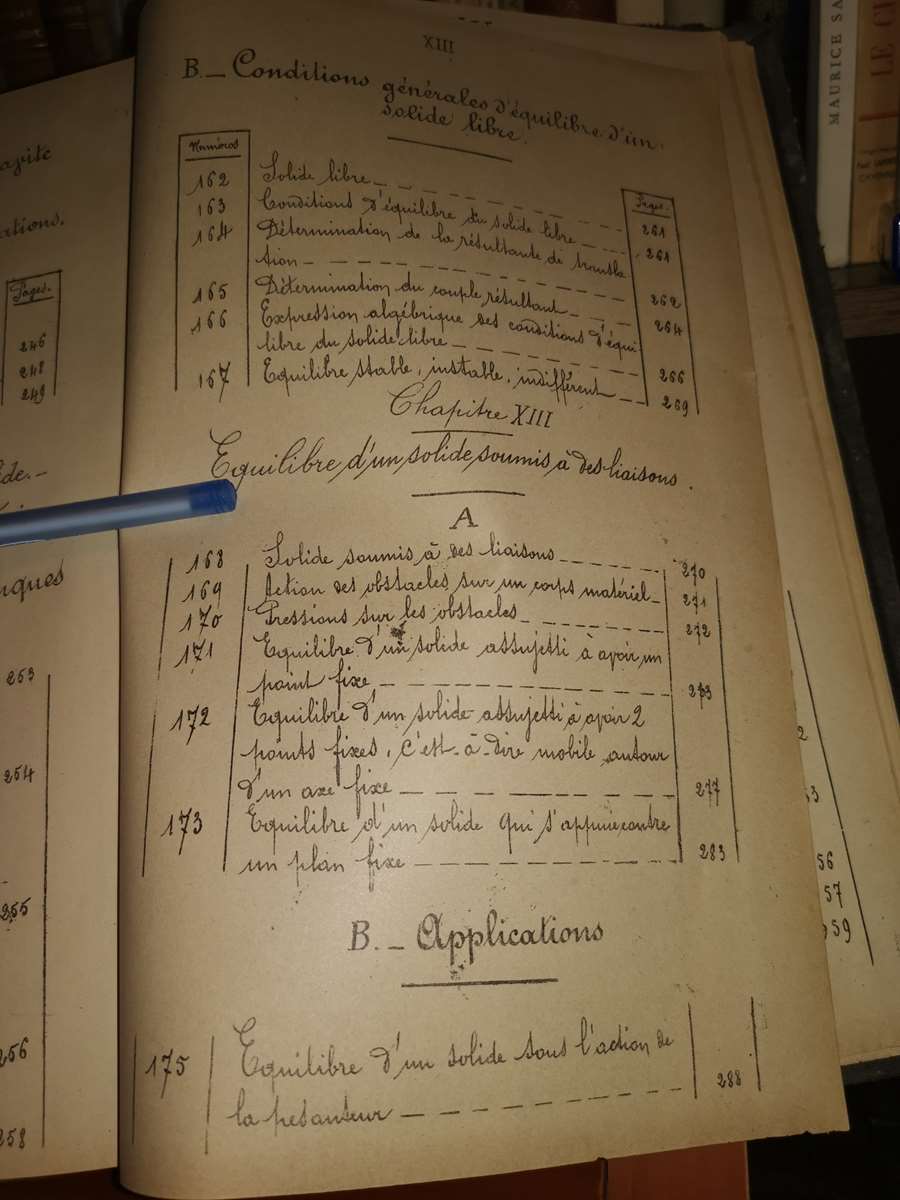 XIII
B._ Conditions générales d'équilibre d'un
solide libre.
Numéros
Pages.
162 Solide libre 261
163 Conditions d'équilibre du solide libre 261
164 Détermination de la résultante de transla
tion 262
165 Détermination du couple résultant 264
166 Expression algébrique des conditions d'équi
libre du solide libre 266
167 Equilibre stable, instable, indifférent 269
Chapitre XIII
Equilibre d'un solide soumis à des liaisons.
A
168 Solide soumis à des liaisons 270
169 Action des obstacles sur un corps matériel 271
170 Pressions sur les obstacles 272
171 Equilibre d'un solide assujetti à avoir un
point fixe 273
172 Equilibre d'un solide assujetti à avoir 2
points fixes, c'est-à-dire mobile autour
d'un axe fixe 277
173 Equilibre d'un solide qui s'appuie contre
un plan fixe 283
B._ Applications
175 Equilibre d'un solide sous l'action de
la pesanteur 288
ations.
Pages.
246
248
249
ide._
iques
253
254
255
256
258
56
57
59
MAURICE SA
LE C